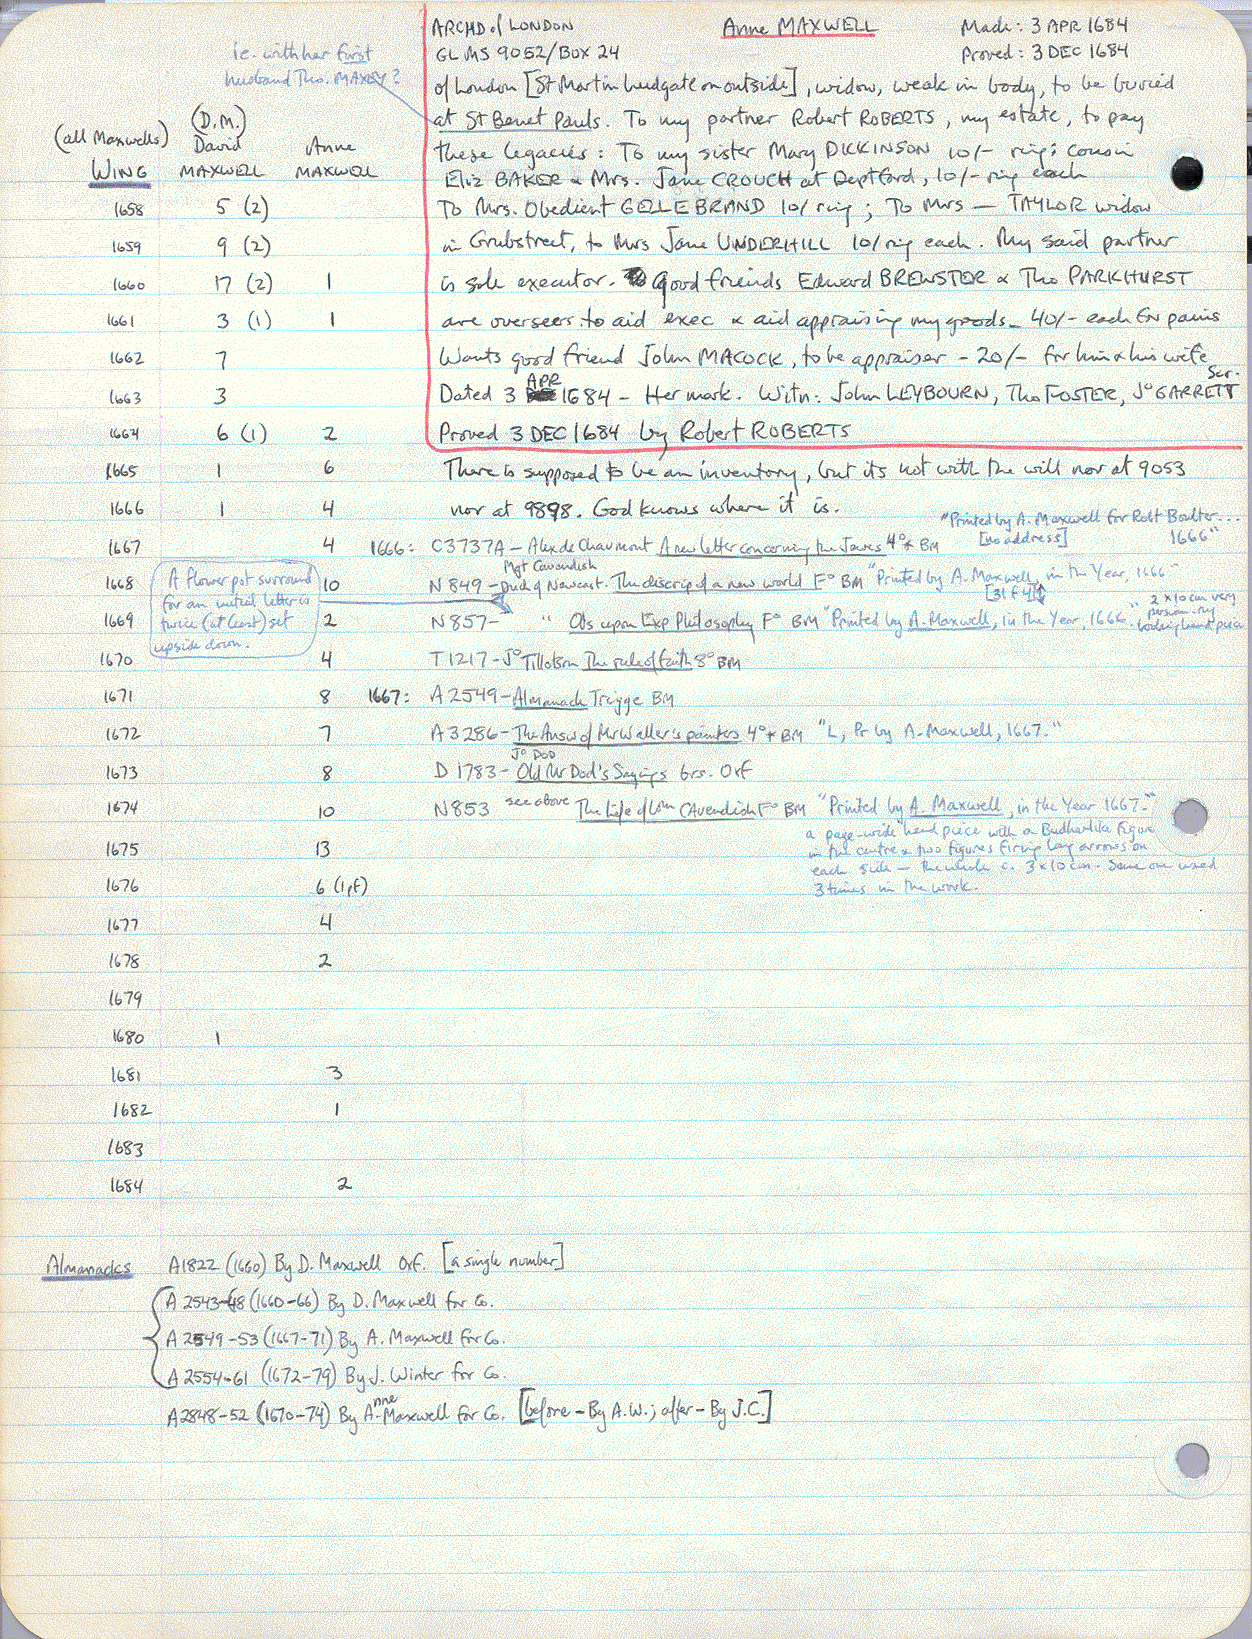 ARCHD of LONDON Anne MAXWELL Made: 3 APR 1684
GL MS 9052/BOX 24 Proved: 3 DEC 1684
ie. with her first
husband Tho. MAXEY?
of London [St Martin Ludgate on outside], widow, weak in body, to be buried
at St Benet Pauls. To my partner Robert ROBERTS, my estate, to pay
these legacies: To my sister Mary DICKINSON 10/- ring; cousin
Eliz BAKER & Mrs. Jane CROUCH at Deptford, 10/- ring each
To Mrs. Obedient GELLEBRAND 10/ ring; To Mrs — TAYLOR widow
in Grubstreet, to Mrs Jane UNDERHILL 10/ ring each. My said partner
is sole executor. Good friends Edward BREWSTER & Tho PARKHURST
are overseers to aid exec & aid appraising my goods - 40/- each for pains
Wants good friend John MACOCK, to be appraiser - 20/- for him & his wife
Dated 3 APR 1684 - Her mark. Witn: John LEYBOURN, Tho FOSTER, Jo GARRETT Scr.
Proved 3 DEC 1684 by Robert ROBERTS
There is supposed to be an inventory, but its not with the will nor at 9053
nor at 9898. God knows where it is.
(all Maxwells) (D.M.)
WING David MAXWELL Anne MAXWELL
1658 5 (2)
1659 9 (2)
1660 17 (2) 1
1661 3 (1) 1
1662 7
1663 3
1664 6 (1) 2
1665 1 6
1666 1 4
1667 4
1668 10
1669 2
1670 4
1671 8
1672 7
1673 8
1674 10
1675 13
1676 6 (1pf)
1677 4
1678 2
1679
1680 1
1681 3
1682 1
1683
1684 2
A flower pot surround
for an initial letter is
twice (at least) set
upside down.
1666: C3737A - Alex de Chaumont A new letter concerning the Jewes 4o* BM "Printed by A. Maxwell for Robt Boulter...
[no address] 1666"
Mgt Cavendish
N 849 - Duch of Newcast. The discrip of a new world Fo BM "Printed by A. Maxwell, in the Year, 1666"
N 857 - " Obs upon Exp Philosophy Fo BM "Printed by A. Maxwell, in the Year, 1666."
2 x 10 cm very
looking head piece
T 1217 - Jo Tillotson The rule of faith 8o BM
1667: A 2549 - Almanack Trigge BM
A 3286 - The Answ of Mr Waller's painters 4o* BM "L, Pr by A. Maxwell, 1667."
Jo DOD
D 1783 - Old Mr Dod's Sayings brs. Oxf
N 853 see above The Life of Wm CAvendish Fo BM "Printed by A. Maxwell, in the Year 1667."
a page-wide head piece with a Budha-like figure
in the centre & two figures firing long arrows on
each side - the whole c. 3 x 10 cm. Same one used
3 times in the work.
Almanacks A1822 (1660) By D. Maxwell Oxf. [a single number]
A 2543-48 (1660-66) By D. Maxwell for Co.
A 2549-53 (1667-71) By A. Maxwell for Co.
A 2554-61 (1672-79) By J. Winter for Co.
A 2848-52 (1670-74) By Anne Maxwell for Co. [before - By A.W.; after - By J.C.]